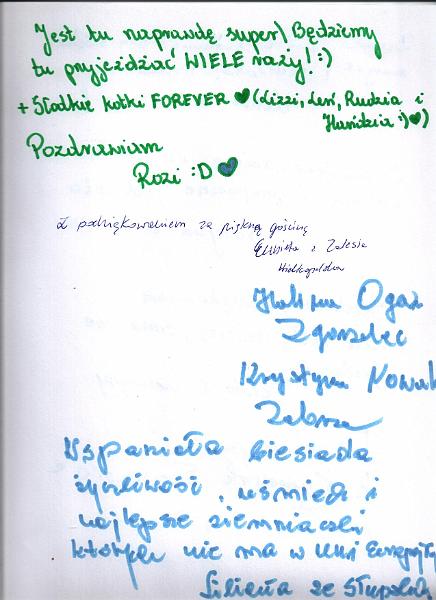 Jest tu naprawdę super! Będziemy
tu przyjeżdżać WIELE razy! :)
+ Słodkie kotki FOREVER ♥ (Lizzi, Leń, Rudzia i
Huńdzia :) ♥)
Pozdrawiam
Rozi :D ♥
Z podziękowaniem za piękną gościnę
Elżbieta z Zalesia
Wielkopolska
Halina Ogaz
Zgorzelec
Krystyna Nowak
Zabrze
Wspaniała biesiada
życzliwość, uśmiech i
najlepsze ziemniaczki
których nie ma w Unii Europejs
Lilianna ze Słupska